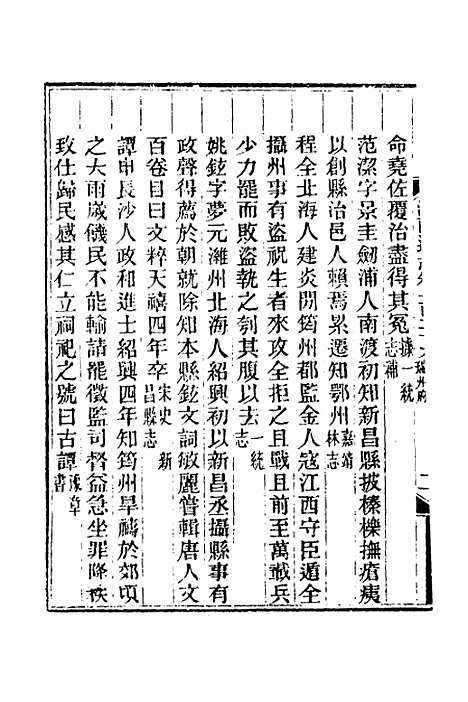 命堯佐覆治盡得其冤據一統志補
范潔字景圭劒浦人南渡初知新昌縣披榛櫟撫瘡痍
以創縣治邑人賴焉累遷知鄂州嘉靖林志
程全北海人建炎間筠州都監金人寇江西守臣遁全
攝州事有盜祝生者來攻全拒之且戰且前至萬歳兵
少力罷而敗盜執之刳其腹以去一統志
姚鉉字夢元濰州北海人紹興初以新昌丞攝縣事有
政聲得薦於朝就除知本縣鉉文詞敏麗嘗輯唐人文
百卷目曰文粹天禧四年卒宋史新昌縣志
譚申長沙人政和進士紹興四年知筠州旱禱於郊頃
之大雨歲饑民不能輸請罷徵監司督益急坐罪降秩
致仕歸民感其仁立祠祀之號曰古譚豫章書